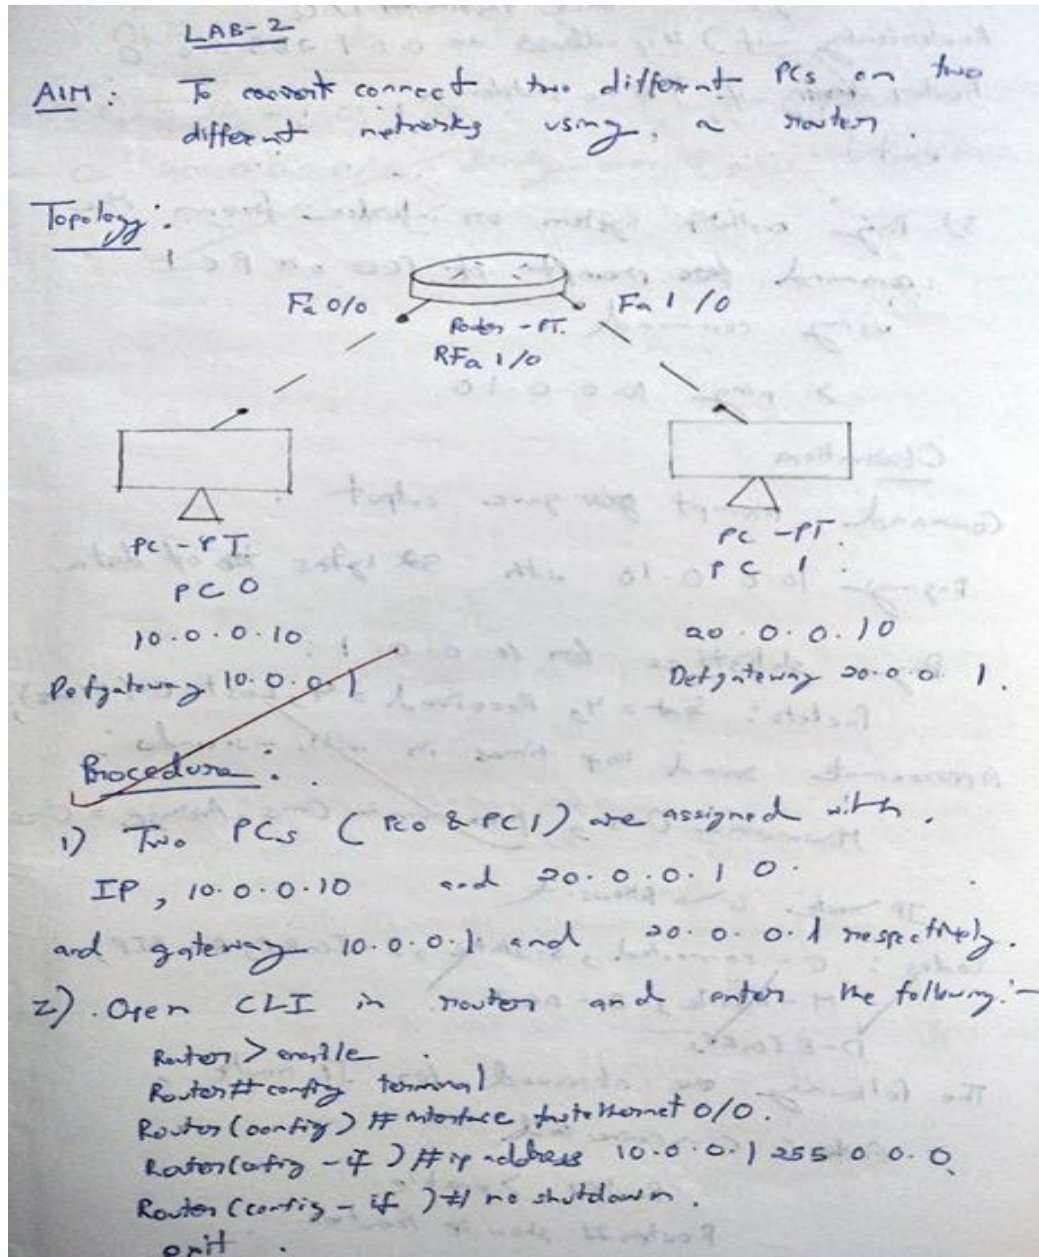 LAB-2
AIM : To connect two different PCs on two
different networks using a router.
Topology :
Fa 0/0
Fa 1/0
Router - PT.
RFa 1/0
PC - PT
PC 0
10.0.0.10
Defgateway 10.0.0.1
PC - PT.
PC 1
20.0.0.10
Defgateway 20.0.0.1.
Procedure :
1) Two PCs (PC0 & PC1) are assigned with
IP, 10.0.0.10 and 20.0.0.10.
and gateway 10.0.0.1 and 20.0.0.1 respectively.
2). Open CLI in router and enter the following:-
Router > enable
Router# config terminal
Router (config) # interface fastethernet 0/0.
Router(config - if ) # ip address 10.0.0.1 255.0.0.0
Router (config - if ) # no shutdown.
exit .